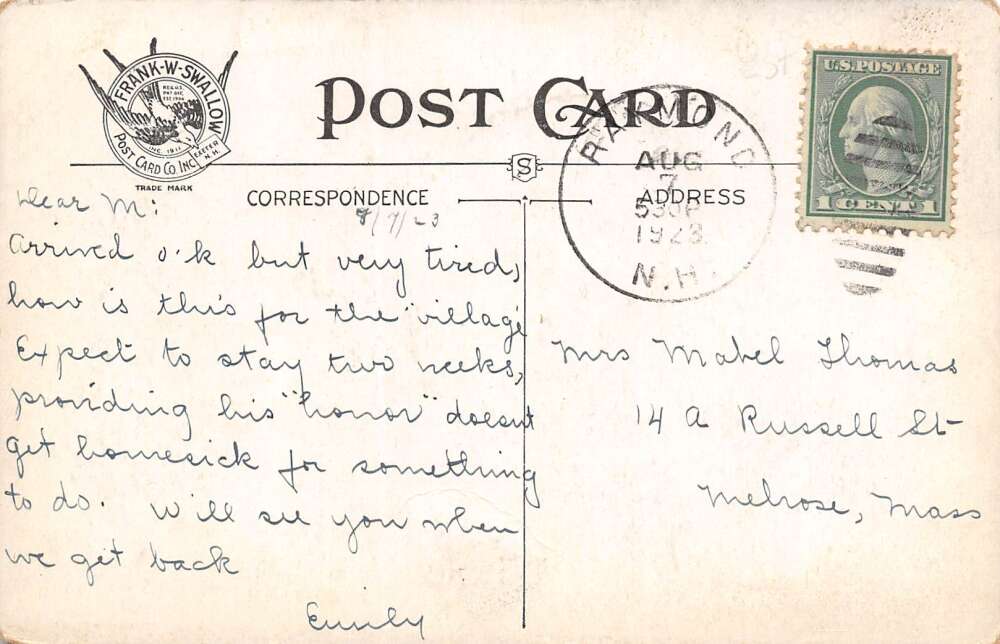 FRANK-W-SWALLOW
REG. U.S.
PAT. OFF.
POST CARD CO. INC.
INC. 1911
EXETER
N.H.
TRADE MARK
POST CARD
S
CORRESPONDENCE
ADDRESS
RAYMOND
AUG
7
530P
1923
N.H.
U.S. POSTAGE
1 CENT 1
8/7/23
Dear M:
Arrived o.k but very tired,
how is this for the "village
Expect to stay two weeks,
providing his "honor" doesnt
get homesick for something
to do. Will see you when
we get back
Emily
Mrs Mabel Thomas
14 A Russell St
Melrose, Mass